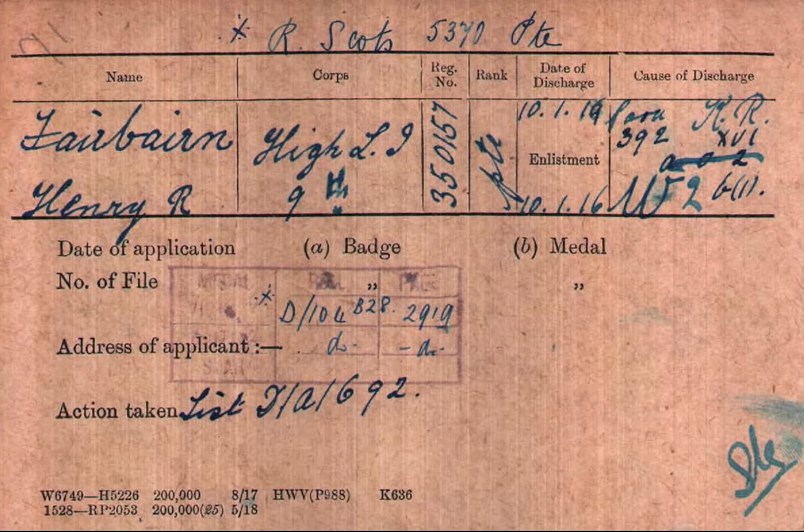 * R. Scots 5370 Pte
Name Corps Reg. No. Rank Date of Discharge Cause of Discharge
Fairbairn High L. I 350157 Pte 10.1.19 Para K. R.
392 XVI
Enlistment
Henry R 9th 10.1.16 2 b(1).
Date of application (a) Badge (b) Medal
No. of File " "
* D/104 B28. 2919
Address of applicant :— d- -d-
Action taken List D/A/692.
W6749—H5226 200,000 8/17 HWV(P988) K636
1528—RP2053 200,000(25) 5/18